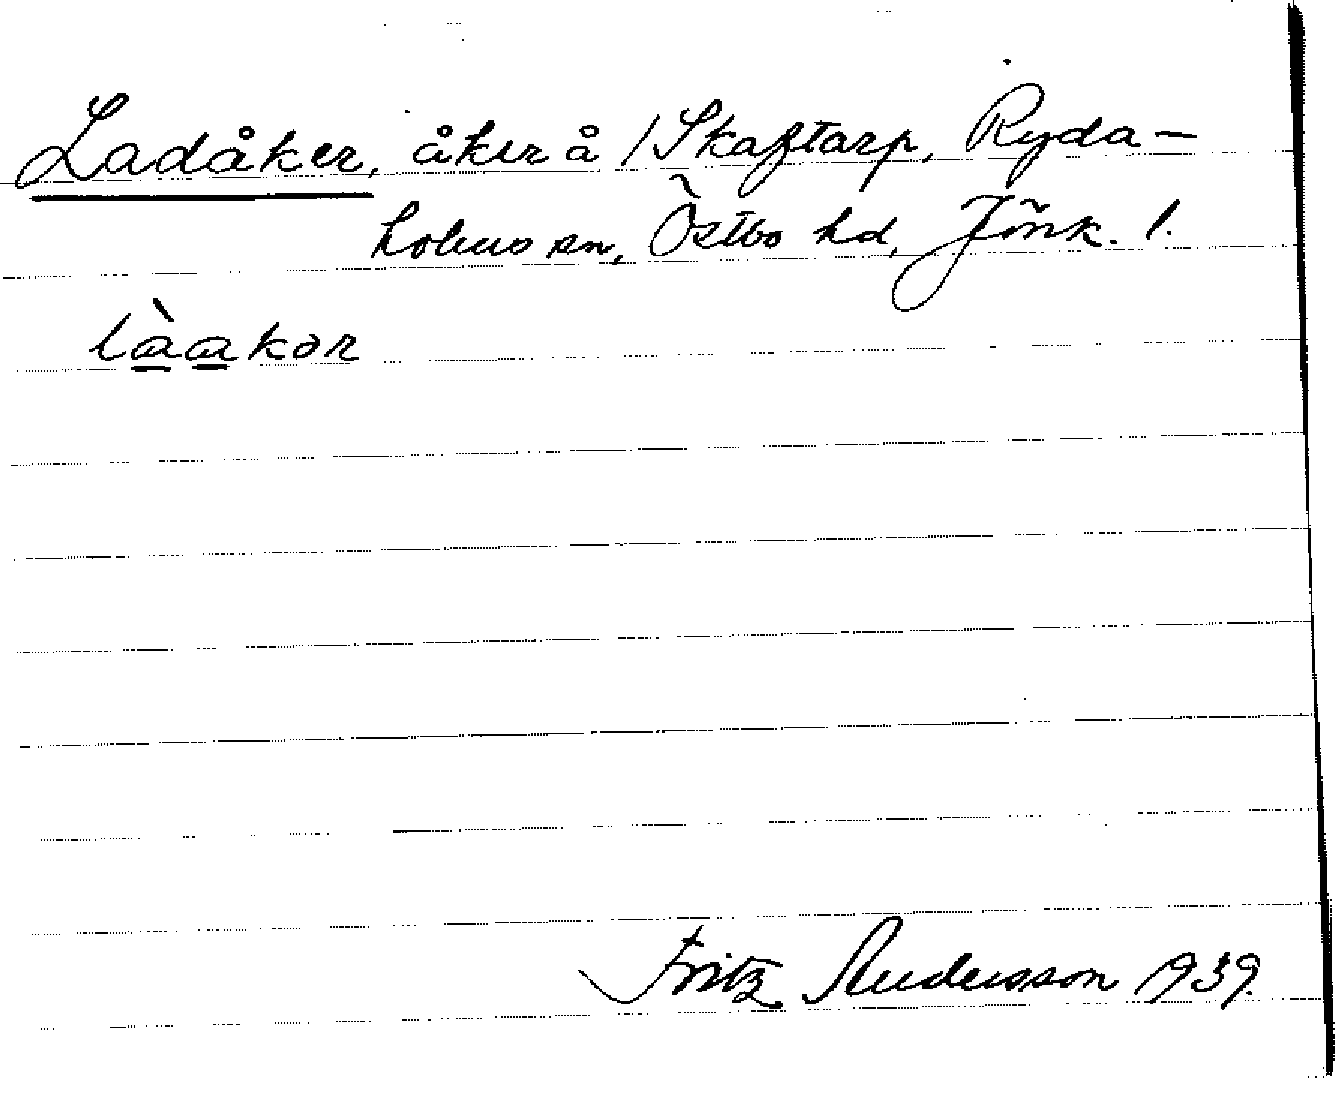 Ladåker, åker å /Skaftarp, Ryda-
holms sn, Östbo hd, Jönk. l.
làakər
Fritz Andersson 1939.